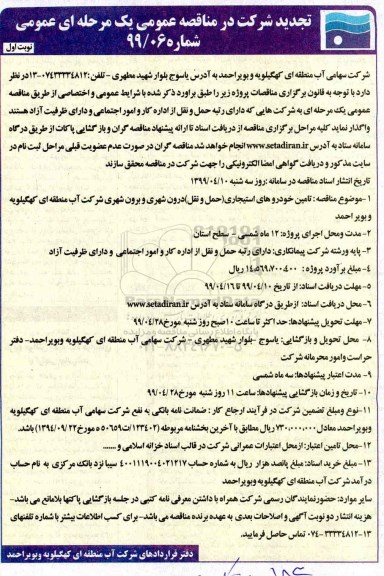 تجدید شرکت در مناقصه عمومی یک مرحله ای عمومی
شماره ۹۹/۰۶
نوبت اول
شرکت سهامی آب منطقه ای کهگیلویه و بویراحمد به آدرس یاسوج بلوار شهید مطهری - تلفن: ۰۷۴۳۳۳۳۴۸۱۲-۱۳ در نظر
دارد با توجه به قانون برگزاری مناقصات پروژه زیر را طبق برآورد ذکر شده با شرایط عمومی و اختصاصی از طریق مناقصه
عمومی یک مرحله ای به شرکت هایی که دارای رتبه حمل و نقل از اداره کار و امور اجتماعی و دارای ظرفیت آزاد هستند
واگذار نماید کلیه مراحل برگزاری مناقصه از دریافت اسناد تا ارائه پیشنهاد مناقصه گران و بازگشایی پاکات از طریق درگاه
سامانه ستاد به آدرس www.setadiran.ir انجام خواهد شد مناقصه گران در صورت عدم عضویت قبلی مراحل ثبت نام در
سایت مذکور و دریافت گواهی امضا الکترونیکی را جهت شرکت در مناقصه محقق سازند
تاریخ انتشار اسناد مناقصه در سامانه: روز سه شنبه ۱۳۹۹/۰۴/۱۰
۱-موضوع مناقصه: تامین خودرو های استیجاری (حمل و نقل) درون شهری و برون شهری شرکت آب منطقه ای کهگیلویه
و بویر احمد
۲- مدت ومحل اجرای پروژه: ۱۲ ماه شمسی - سطح استان
۳- پایه ورشته شرکت پیمانکاری: دارای رتبه حمل و نقل از اداره کار و امور اجتماعی و دارای ظرفیت آزاد
۴- مبلغ برآورد پروژه: ۱۴،۵۶۹،۷۰۰،۴۰۰ ریال
۵-مهلت دریافت اسناد: از تاریخ ۹۹/۰۴/۱۰ تا ۹۹/۰۴/۱۶
۶- محل دریافت اسناد: ازطریق درگاه سامانه ستاد به آدرس www.setadiran.ir
۷-مهلت تحویل پیشنهادها: حداکثر تا ساعت ۱۰ صبح روز شنبه مورخ ۹۹/۰۴/۲۸
۸- محل تحویل و بازگشایی: یاسوج -بلوار شهید مطهری - شرکت سهامی آب منطقه ای کهگیلویه وبویراحمد- دفتر
حراست وامور محرمانه شرکت
۹- مدت اعتبار پیشنهادها: سه ماه شمسی
۱۰- تاریخ و زمان بازگشایی پیشنهادها: ساعت ۱۱ روز شنبه مورخ ۹۹/۰۴/۲۸
۱۱-نوع ومبلغ تضمین شرکت در فرآیند ارجاع کار: ضمانت نامه بانکی به نفع شرکت سهامی آب منطقه ای کهگیلویه
وبویراحمد معادل ۷۳۰،۰۰۰،۰۰۰ ریال مطابق با آخرین بخشنامه مربوطه (۱۲۳۴۰۲/ت۵۰۶۵۹ه مورخ ۱۳۹۴/۰۹/۲۲) باشد.
۱۲-محل تامین اعتبار: ازمحل اعتبارات عمرانی شرکت در قالب اسناد خزانه اسلامی و ......
۱۳-مبلغ خرید اسناد: مبلغ پانصد هزار ریال به شماره حساب ۴۰۰۱۱۱۹۰۰۴۰۲۱۲۱۷ سیبا نزد بانک مرکزی به نام حساب
درآمد شرکت آب منطقه ای کهگیلویه وبویراحمد
سایر موارد: حضورنمایندگان رسمی شرکت همراه با داشتن معرفی نامه کتبی در جلسه بازگشایی پاکتها بلامانع می باشد-
هزینه انتشار دو نوبت آگهی و اصلاحات بعدی به عهده برنده مناقصه می باشد- برای کسب اطلاعات بیشتر با شماره تلفنهای
۰۷۴-۳۳۳۳۴۸۱۲-۱۳ تماس حاصل فرمایید.
دفتر قراردادهای شرکت آب منطقه ای کهگیلویه وبویراحمد